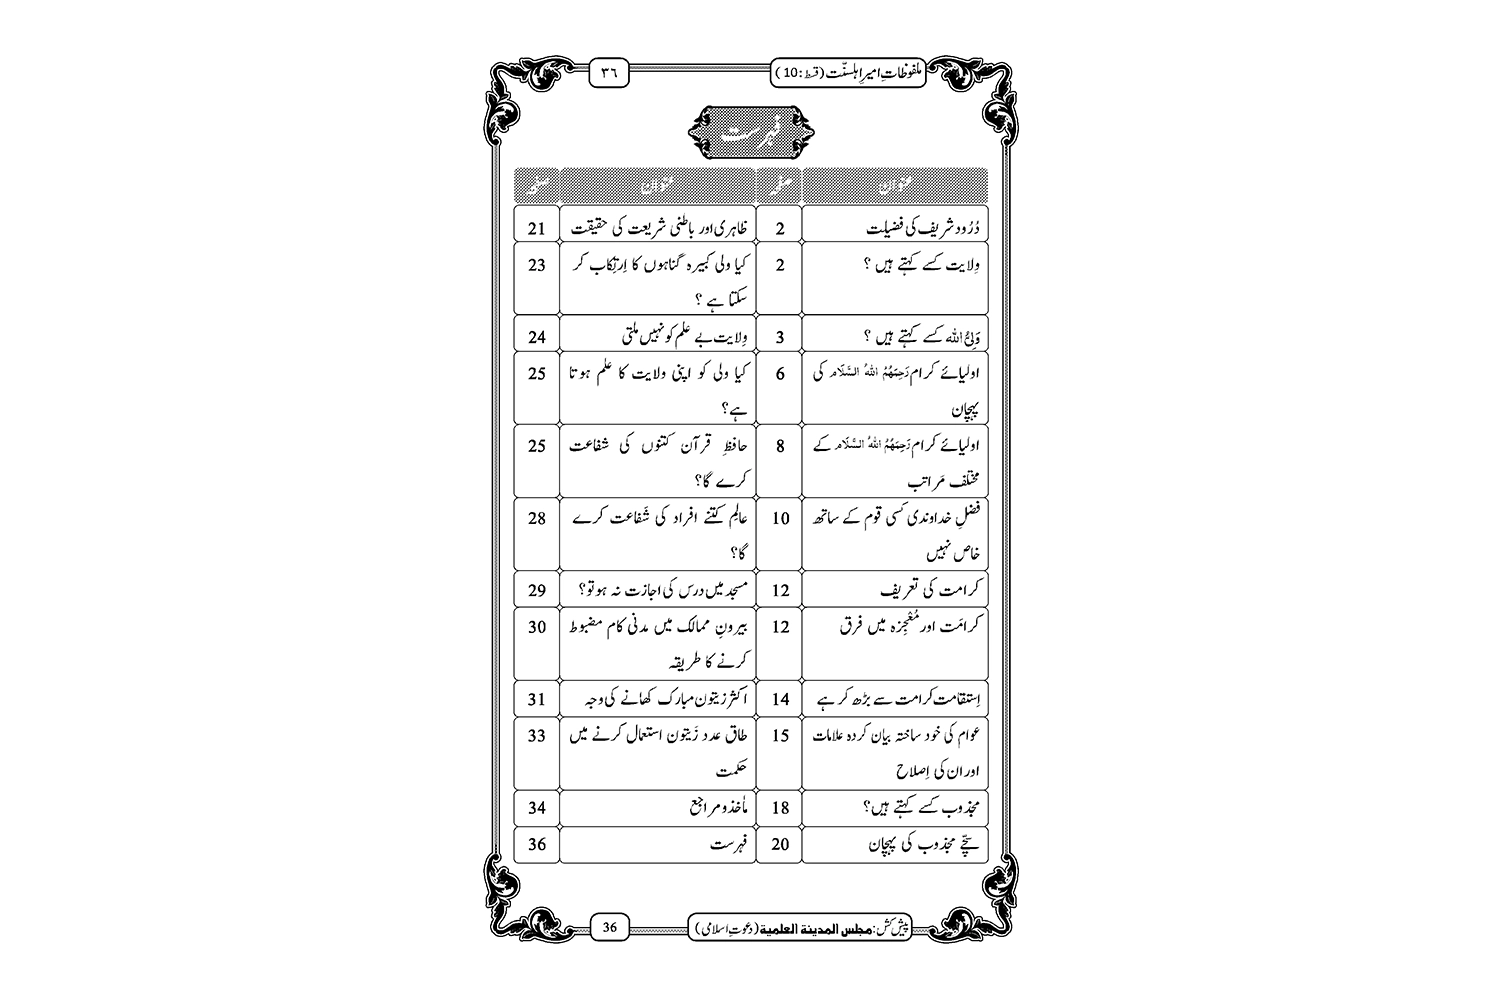 ملفوظاتِ امیرِ اہلسنّت (قسط:10)
٣٦
فہرست
عنوان صفحہ عنوان صفحہ
دُرُود شریف کی فضیلت 2 ظاہری اور باطنی شریعت کی حقیقت 21
وِلایت کسے کہتے ہیں ؟ 2 کیا ولی کبیرہ گناہوں کا اِرتِکاب کر 23
سکتا ہے ؟
وَلِیُّ اللہ کسے کہتے ہیں ؟ 3 وِلایت بے علم کو نہیں ملتی 24
اولیائے کرام رَحِمَھُمُ اللہُ السَّلَام کی 6 کیا ولی کو اپنی ولایت کا علم ہوتا 25
پہچان ہے؟
اولیائے کرام رَحِمَھُمُ اللہُ السَّلَام کے 8 حافظِ قرآن کتنوں کی شفاعت 25
مختلف مَراتب کرے گا؟
فضلِ خداوندی کسی قوم کے ساتھ 10 عالِم کتنے افراد کی شَفاعت کرے 28
خاص نہیں گا؟
کرامت کی تعریف 12 مسجد میں درس کی اجازت نہ ہو تو؟ 29
کرامَت اور مُعْجِزہ میں فرق 12 بیرونِ ممالک میں مدنی کام مضبوط 30
کرنے کا طریقہ
اِستقامت کرامت سے بڑھ کر ہے 14 اکثر زیتون مبارک کھانے کی وجہ 31
عوام کی خود ساختہ بیان کردہ علامات 15 طاق عدد زَیتون استعمال کرنے میں 33
اور ان کی اِصلاح حکمت
مجذوب کسے کہتے ہیں؟ 18 مآخذ و مراجع 34
سچّے مجذوب کی پہچان 20 فہرست 36
پیش کش: مجلس المدینۃ العلمیۃ (دعوتِ اسلامی)
36